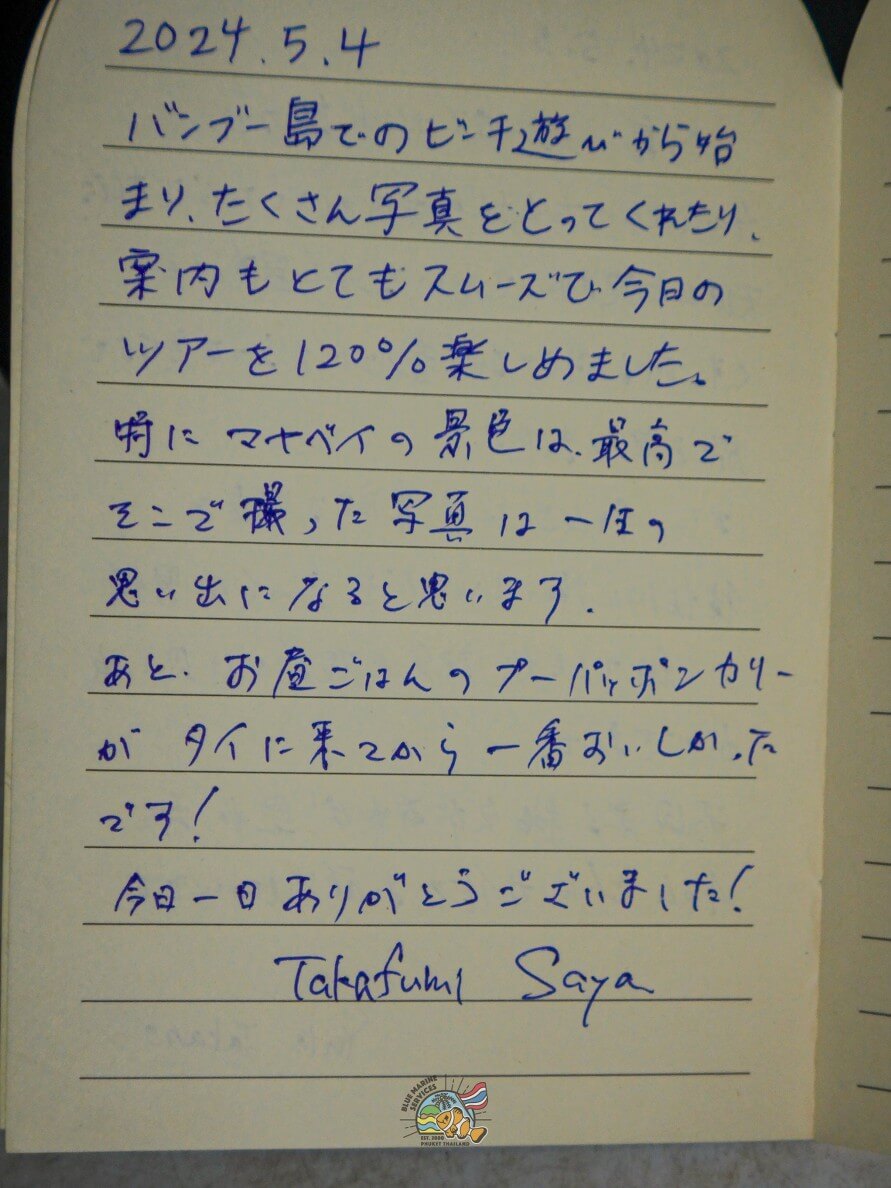 2024.5.4
バンブー島でのビーチ遊びから始
まり、たくさん写真をとってくれたり、
案内もとてもスムーズで今日の
ツアーを120%楽しめました。
特にマヤベイの景色は、最高で
そこで撮った写真は一生の
思い出になると思います.
あと、お昼ごはんのプーパッポンカリー
がタイに来てから一番おいしかった
です!
今日一日ありがとうございました!
Takafumi Saya
BLUE MARINE SERVICES
EST. 2000
PHUKET THAILAND